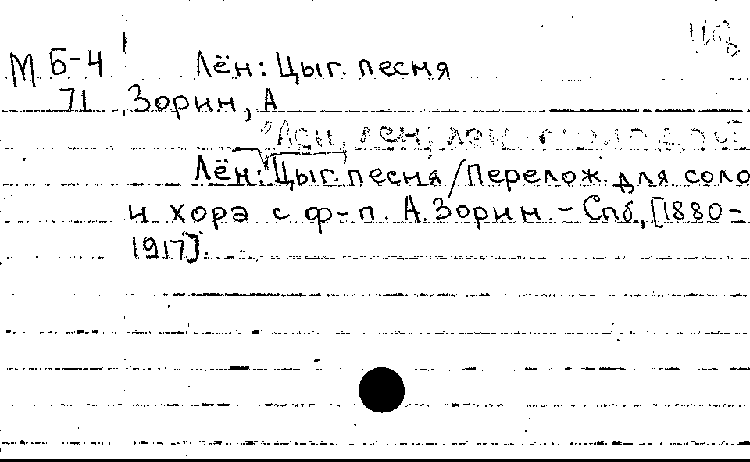 М Б-4 Лён: Цыг. песня
71 Зорин, А
"Лен, лен, лен
Лён: Цыг. песня / Перелож. для соло
и хора с ф-п. А. Зорин. - Спб., [1880-
1917].